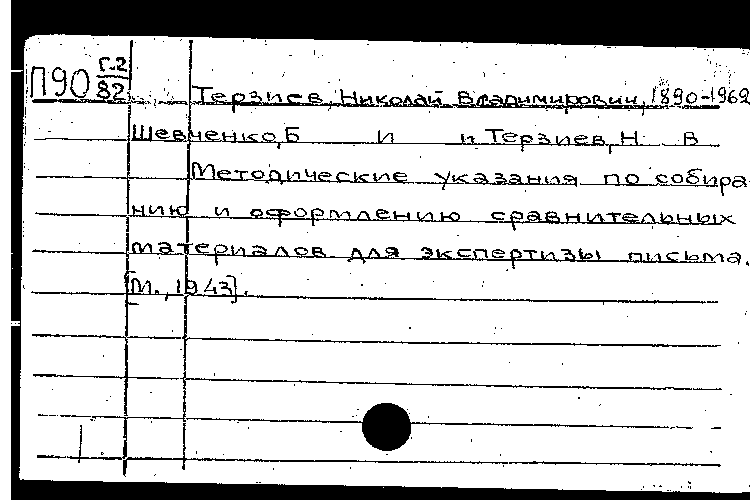 П90 Г.2/82
Терзиев, Николай Владимирович, 1890-1962
Шевченко, Б И и Терзиев, Н. В
Методические указания по собира-
нию и оформлению сравнительных
материалов для экспертизы письма.
[М., 1943].